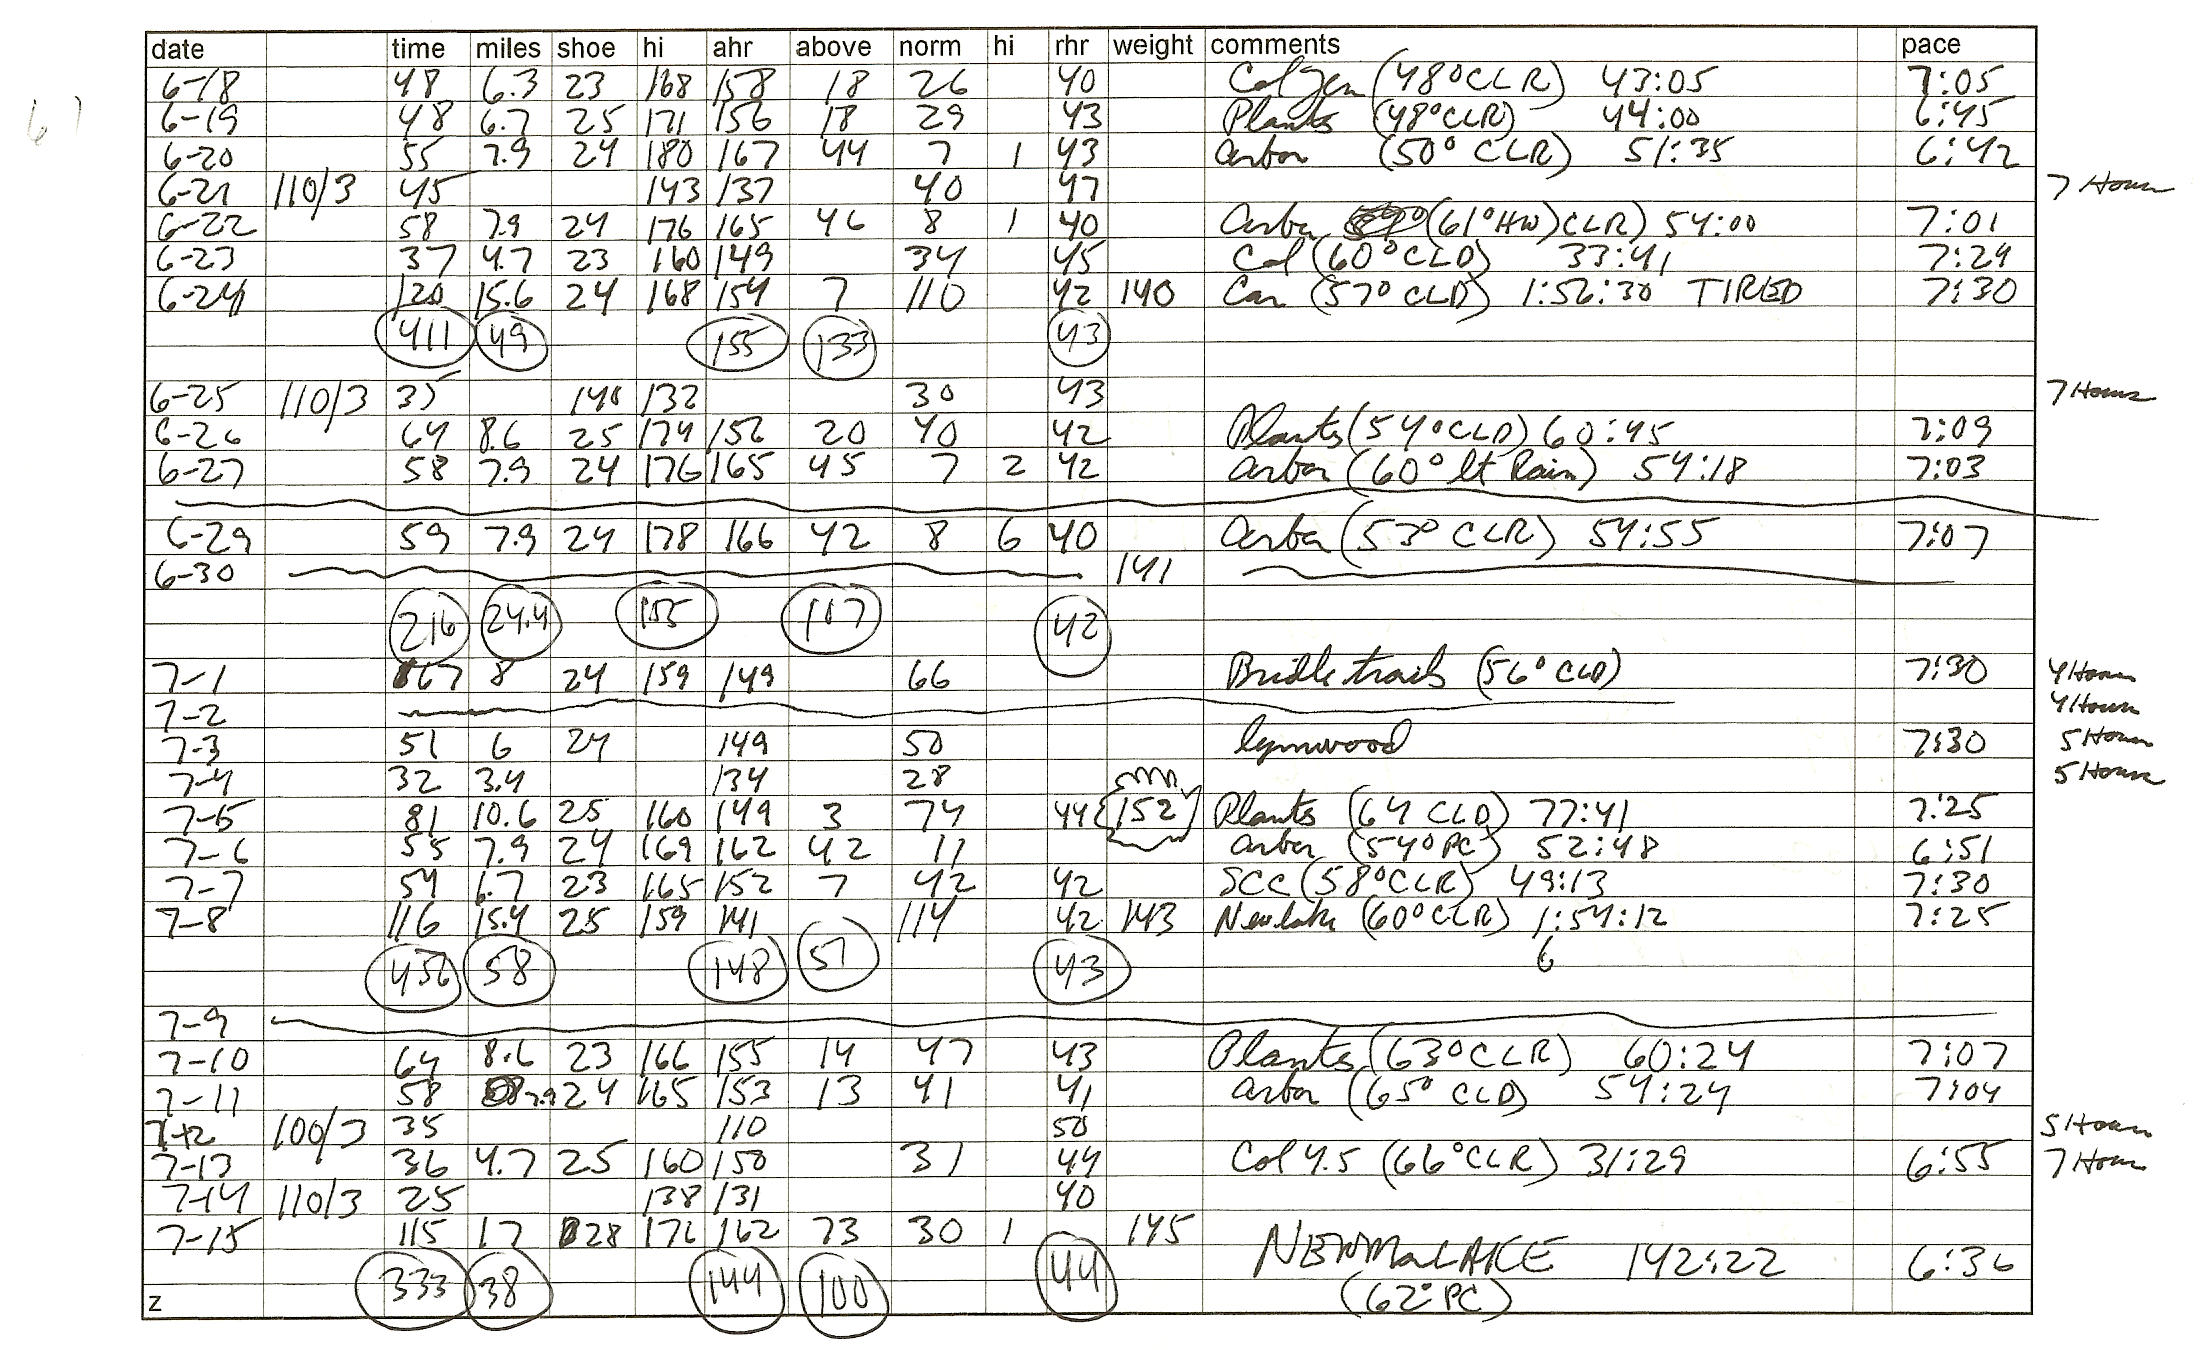 date time miles shoe hi ahr above norm hi rhr weight comments pace
6-18 48 6.3 23 168 158 18 26 40 Col Gen (48° CLR) 43:05 7:05
6-19 48 6.7 25 171 156 18 29 43 Plants (48° CLR) 44:00 6:45
6-20 55 7.9 24 180 167 44 7 1 43 arbor (50° CLR) 51:35 6:42
6-21 110/3 45 143 137 40 47 7 Hours
6-22 58 7.9 24 176 165 46 8 1 40 Arbor (61° HW) CLR) 54:00 7:01
6-23 37 4.7 23 160 149 34 45 Col (60° CLD) 33:41 7:29
6-24 120 15.6 24 168 154 7 110 42 140 Car (57° CLD) 1:56:30 TIRED 7:30
411 49 155 133 43
6-25 110/3 35 140 132 30 43 7 Hours
6-26 64 8.6 25 174 156 20 40 42 Plants (54° CLD) 60:45 7:09
6-27 58 7.9 24 176 165 45 7 2 42 arbor (60° lt Rain) 54:18 7:03
6-29 59 7.9 24 178 166 42 8 6 40 Arbor (53° CLR) 54:55 7:07
6-30 141
216 24.4 155 107 42
7-1 67 8 24 159 149 66 Bridle trails (56° CLD) 7:30 4 Hours
7-2 4 Hours
7-3 51 6 24 149 50 lynnwood 7:30 5 Hours
7-4 32 3.4 134 28 5 Hours
7-5 81 10.6 25 160 149 3 74 44 152 Plants (64 CLD) 77:41 7:25
7-6 55 7.9 24 169 162 42 11 arbor (54° PC) 52:48 6:51
7-7 54 6.7 23 165 152 7 42 42 SCC (58° CLR) 49:13 7:30
7-8 116 15.4 25 159 141 114 42 143 New lake (60° CLR) 1:54:12 7:25
456 58 148 51 43 6
7-9
7-10 64 8.6 23 166 155 14 47 43 Plants (63° CLR) 60:24 7:07
7-11 58 7.9 24 165 153 13 41 41 arbor (65° CLD) 54:24 7:04
7-12 100/3 35 110 50 5 Hours
7-13 36 4.7 25 160 150 31 44 Col 4.5 (66° CLR) 31:29 6:55 7 Hours
7-14 110/3 25 138 131 40
7-15 115 17 28 176 162 73 30 1 145
NEWMAN LAKE 142:22 6:36
333 38 144 100 44
z (62° PC)